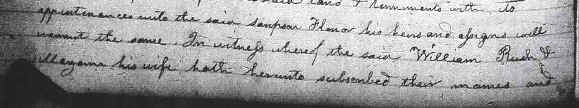 said land & tenements with to
appurtenances unto the said Sampson Flanor his heirs and assigns will
warrant the same. In witness whereof the said William Rush &
his wife hath hereunto subscribed their names and